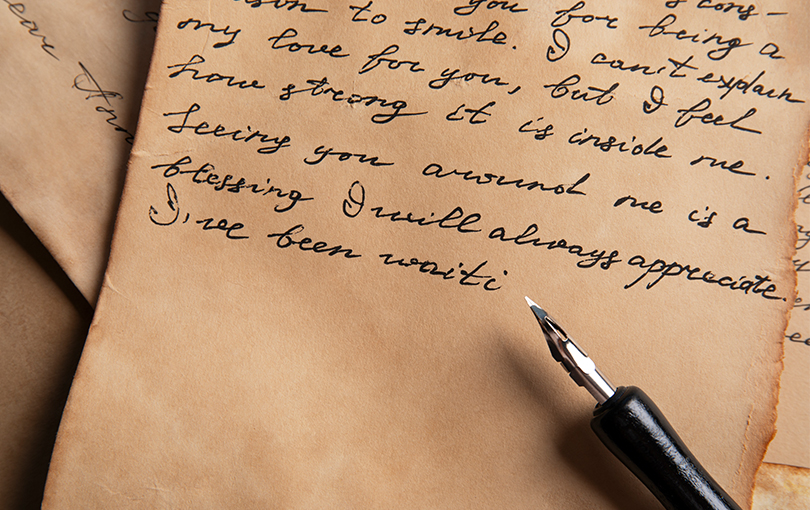 cons-
you for being a
son to smile. I can't explain
my love for you, but I feel
how strong it is inside me.
Seeing you around me is a
blessing I will always appreciate.
I've been waiti
ear